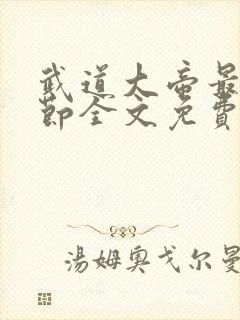 武道大帝最
節全文免費
湯姆奧戈尔曼